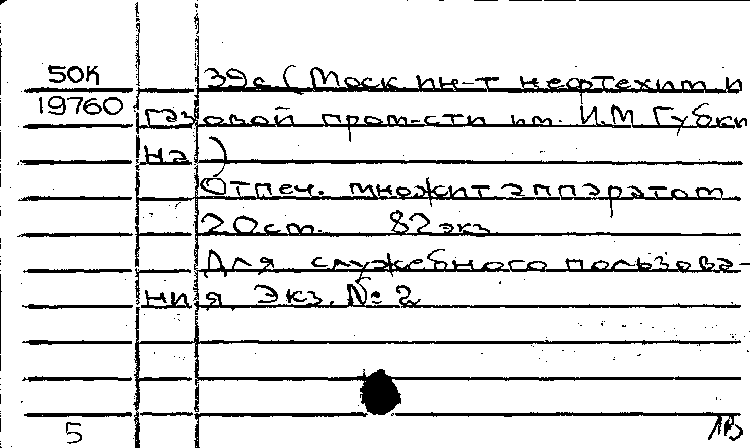 50К 39с (Моск ин-т нефтехим и
19760 газовой пром-сти им. И.М Губки
на)
Отпеч. множит аппаратом
20см. 82экз
Для служебного пользова-
ния Экз. № 2
5